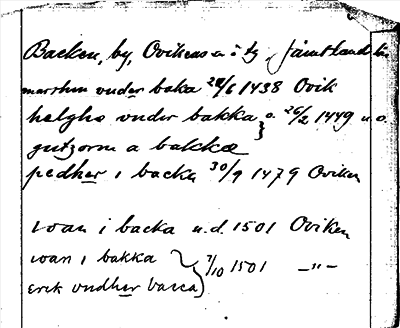 Backen, by, Ovikens s:n o tg, Jämtlands l:n
marthin vnder baka 24/6 1438 Ovik
helgho vnder bakka } o. 26/2 1449 u.o.
gutzorm a bakkæ
pedher i backa 30/9 1479 Oviken
ioan i backa u.d. 1501 Oviken
ioan i bakka } 7/10 1501 —"—
Erik vndher bacca